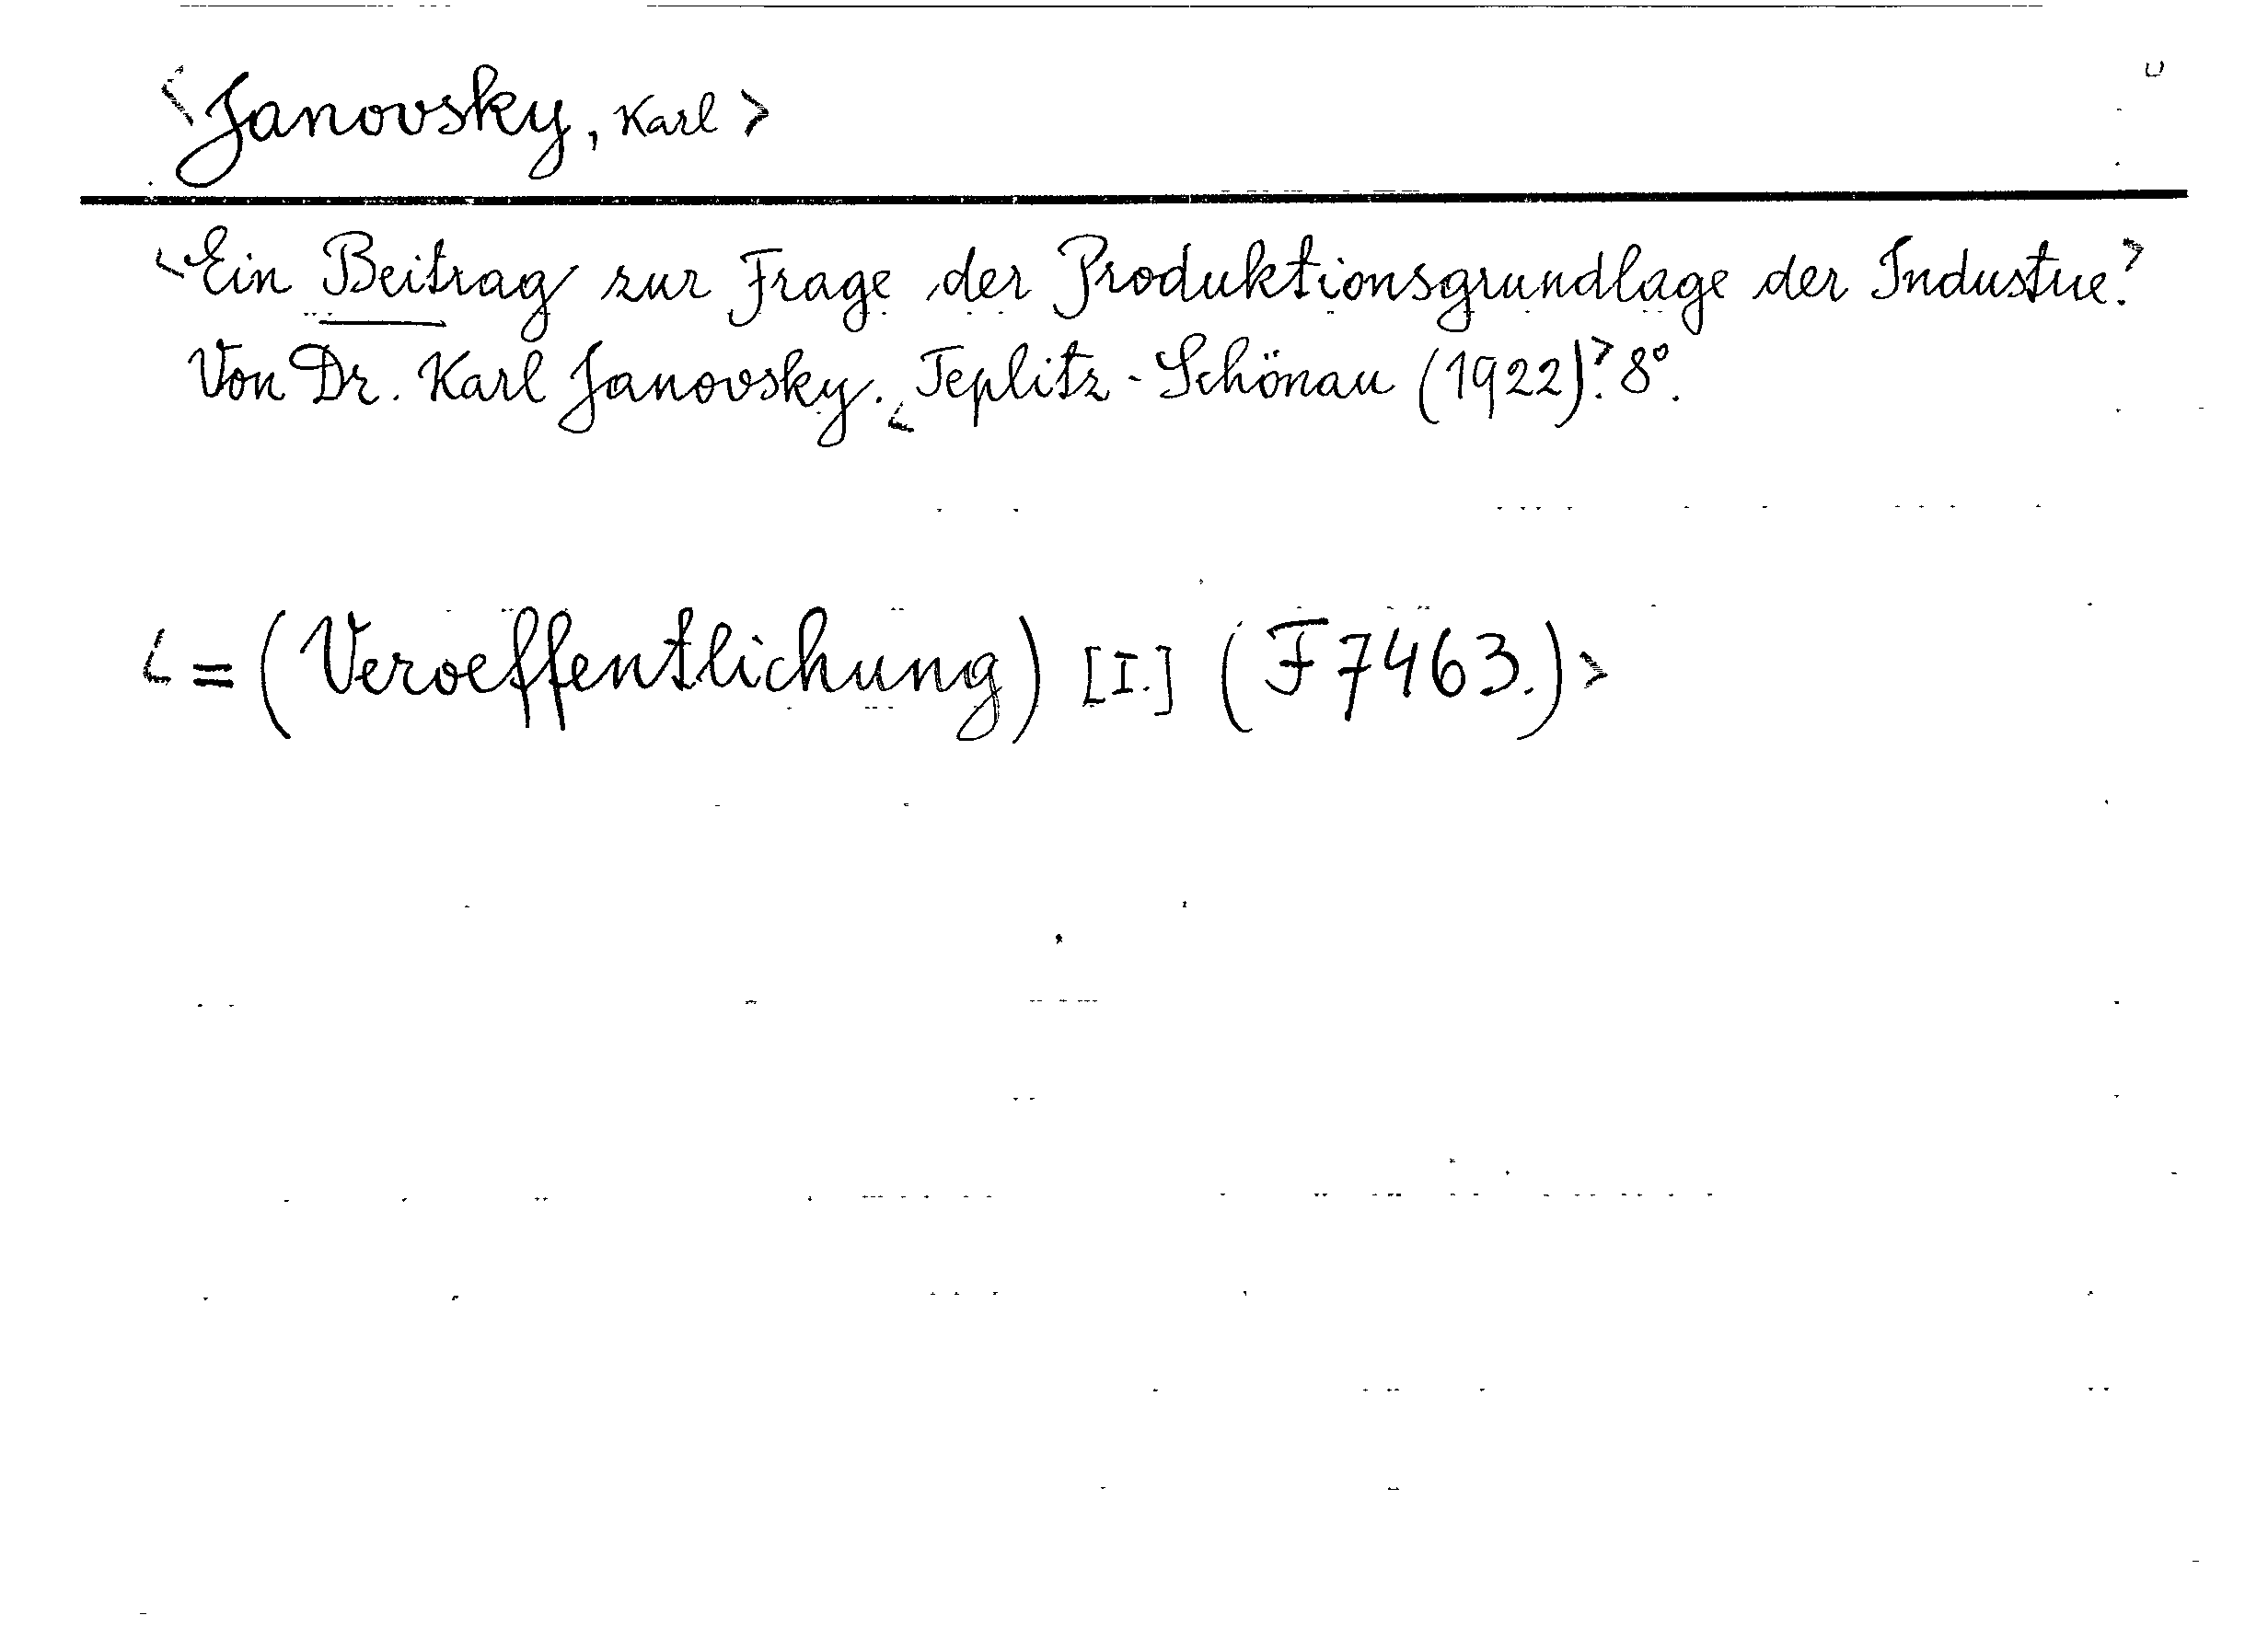 <Janovsky, Karl>
<Ein Beitrag zur Frage der Produktionsgrundlage der Industrie>.
Von Dr. Karl Janovsky. <Teplitz-Schönau (1922)>. 8°.
<= (Veroeffentlichung) [I.] (F 7463.)>